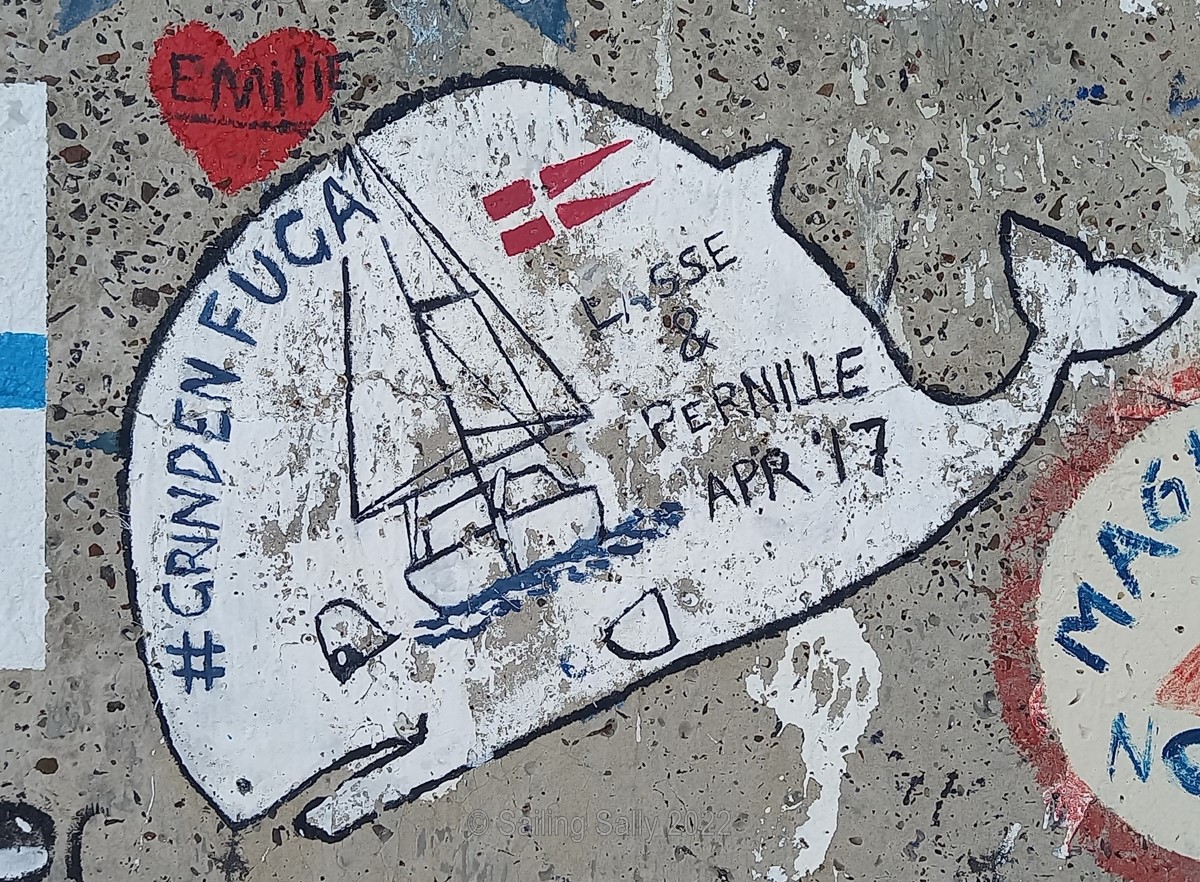 EMilIE
#GRINDENFUGA
LASSE
&
PERNILLE
APR '17
MAGI
© Sailing Sally 2022